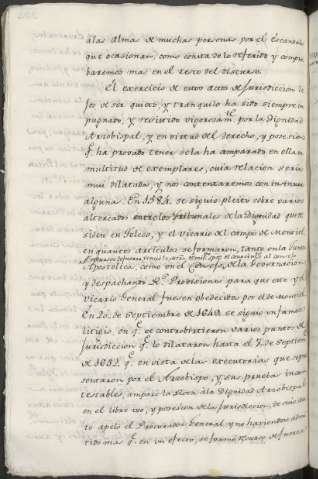 a las almas de muchas personas por el escandalo
que ocasionan, como consta de lo referido y compro
baremos mas en el resto del discurso.
El exercicio de estos actos de Jurisdiccion le
jos de ser quieto, y tranquilo ha sido siempre im
pugnado, y resistido vigorosamte. por la Dignidad
Arzobispal, y en virtud del derecho, y posesion
q. ha provado tener se la ha amparado en ella en
multitud de exemplares, cuia relacion seria
mui dilatada, y nos contentaremos con insinuar
alguna. En 1584. se siguió pleito sobre varios
altercados entre los Tribunales de la Dignidad que re
siden en Toledo, y el vicario del campo de Montiel
en quanto articulos se formaron, tanto en la Nunci
Apostolica, como en el Consejo de la Governacion
y despachando Rs. Provisiones para que este y el
Vicario General fuesen obedecidos por el de Montiel
En 20 de Septiembre de 1649. se siguio un famoso
litigio, en q. se controbirtieron varios puntos de
Jurisdiccion q. se dilataron hasta el 7 de Septiem
de 1652. q. en vista de las executorias que repre
sentaron por el Arzobispo, y sus pruebas incon
testables, amparó la Rota a la Dignidad Arzobispal
en el libre uso, y posesion de la Jurisdiccion, de cuio
to apeló el Procurador General y no haviendose admi
tido mas q. en un efecto, se formó Recurso de fuerza